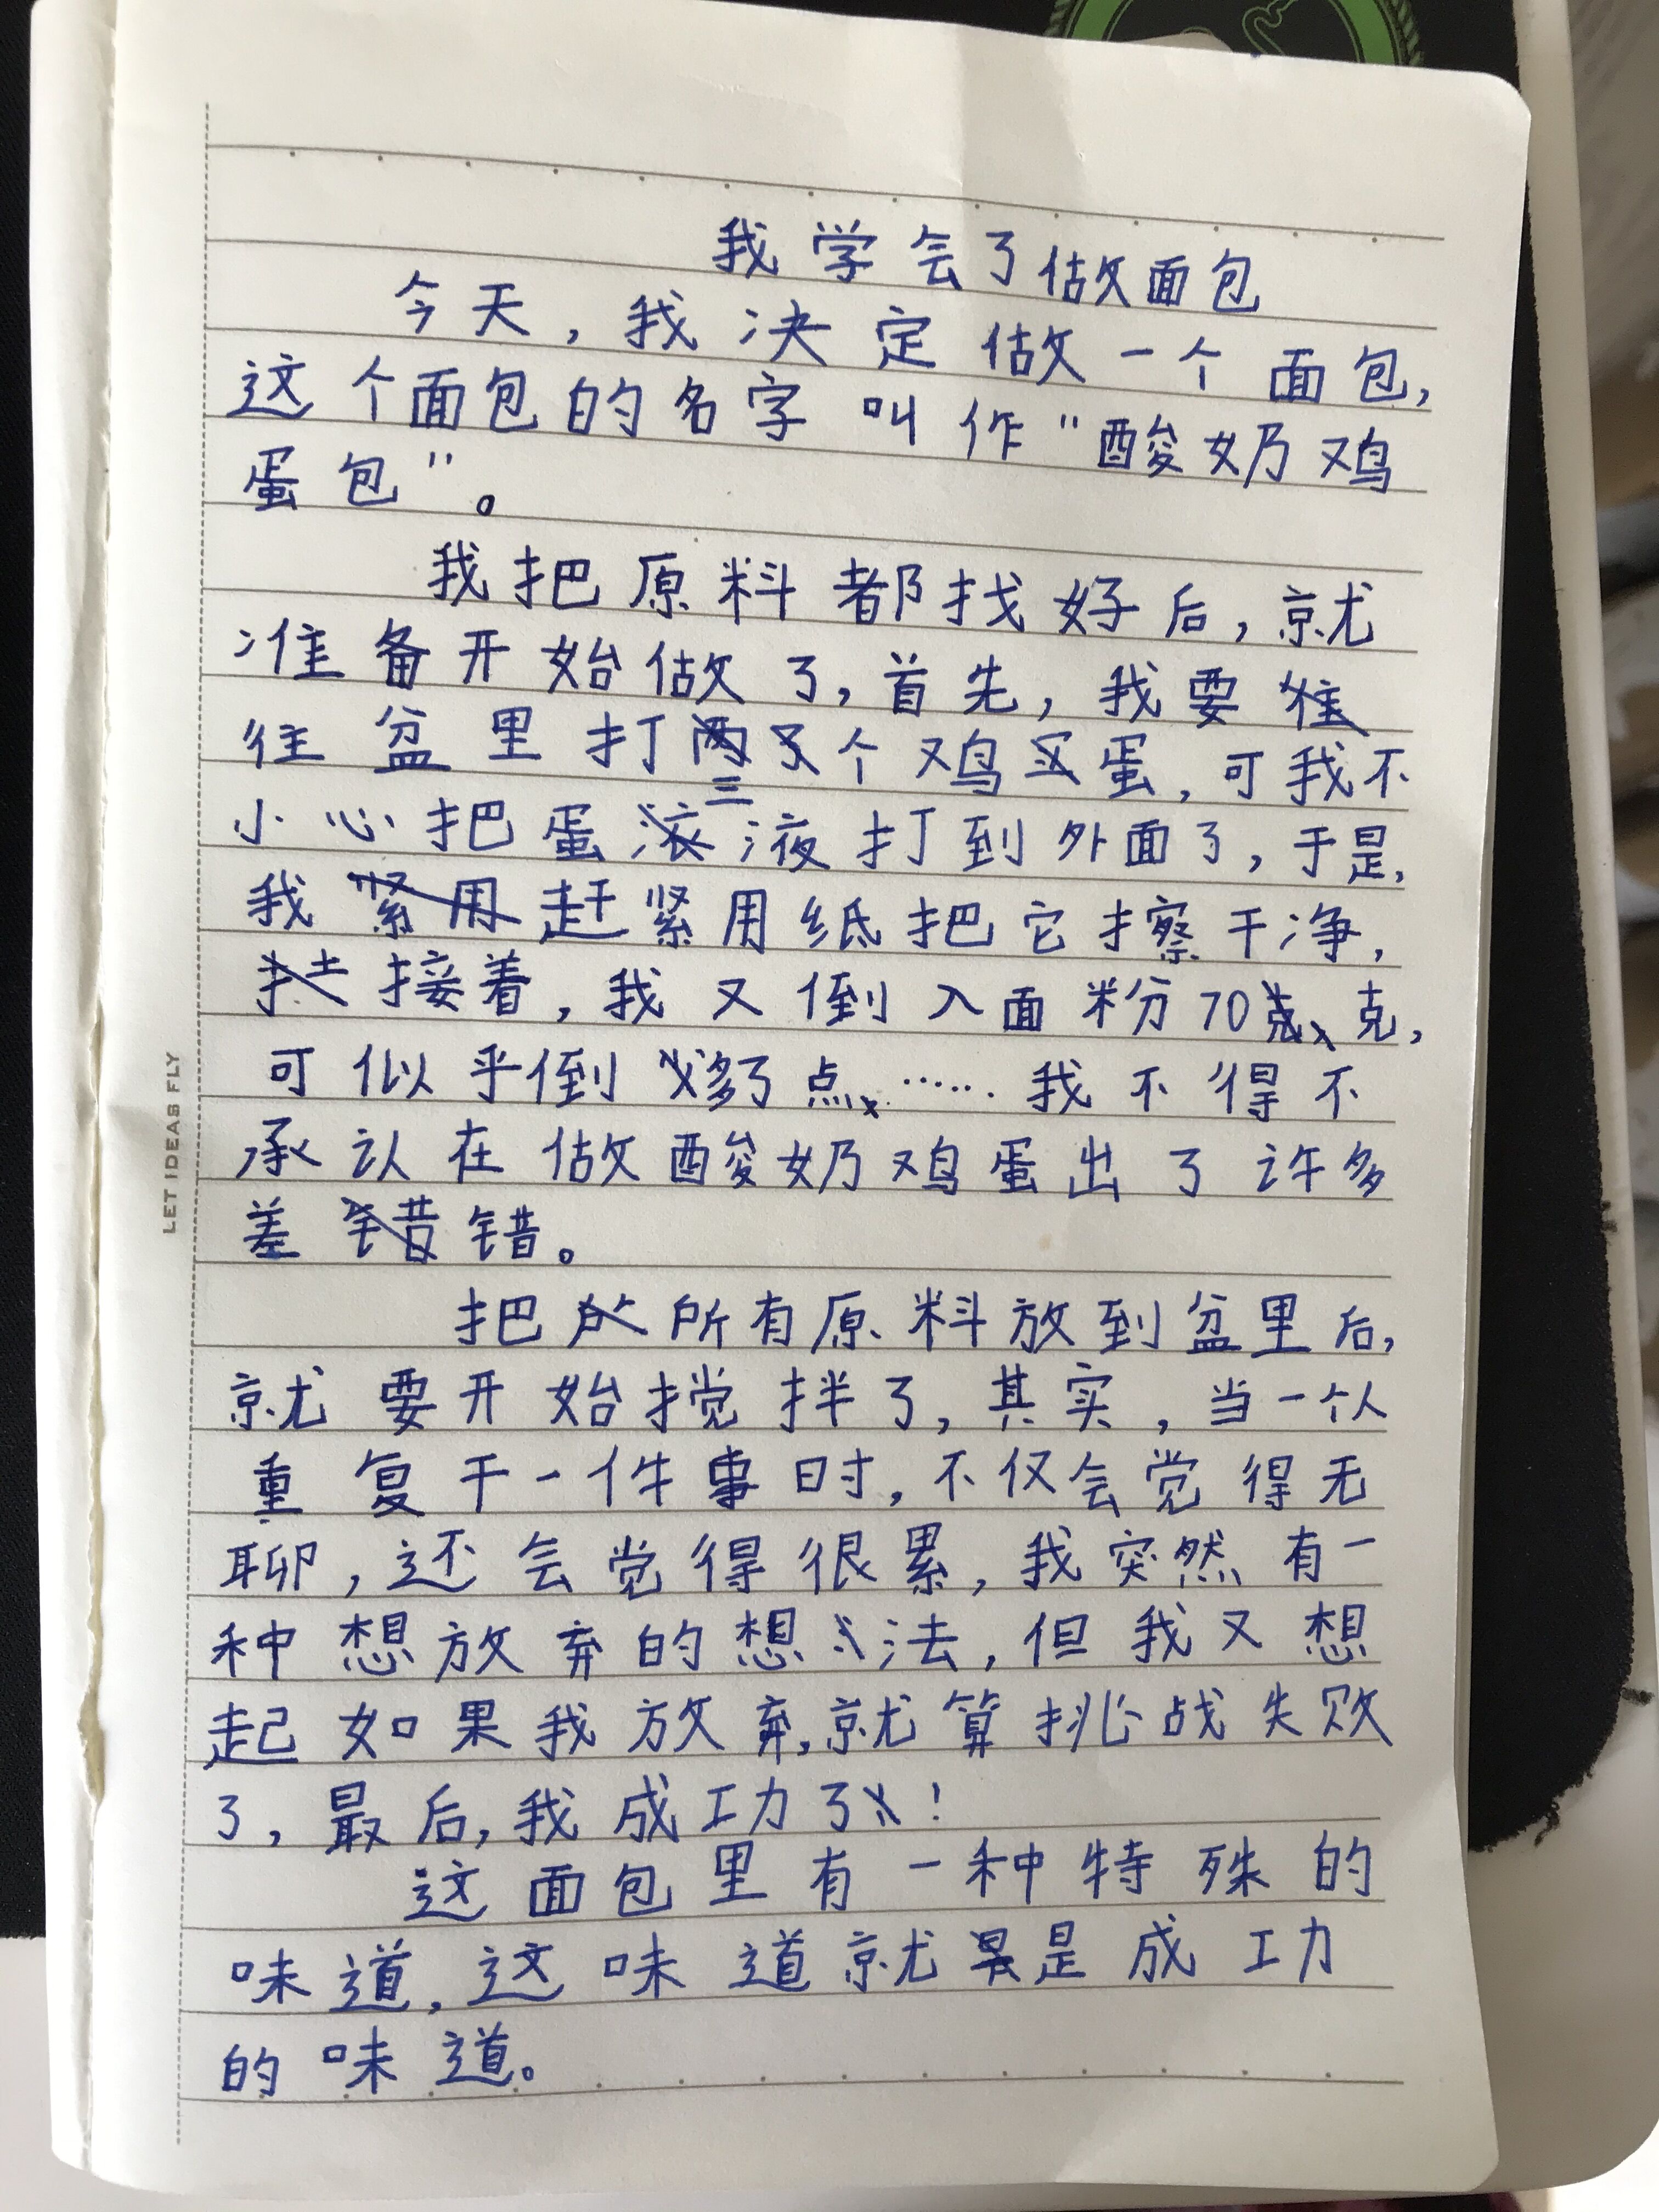 我学会了做面包
今天，我决定做一个面包，
这个面包的名字叫作“酸奶鸡
蛋包”。
我把原料都找好后，就
准备开始做了，首先，我要
往盆里打三个鸡蛋，可我不
小心把蛋液打到外面了，于是，
我赶紧用纸把它擦干净，
接着，我又倒入面粉70克，
可似乎倒多了点……我不得不
承认在做酸奶鸡蛋出了许多
差错。
把所有原料放到盆里后，
就要开始搅拌了，其实，当一个人
重复干一件事时，不仅会觉得无
聊，还会觉得很累，我突然有一
种想放弃的想法，但我又想
起如果我放弃，就算挑战失败
了，最后，我成功了！
这面包里有一种特殊的
味道，这味道就是成功
的味道。
LET IDEAS FLY